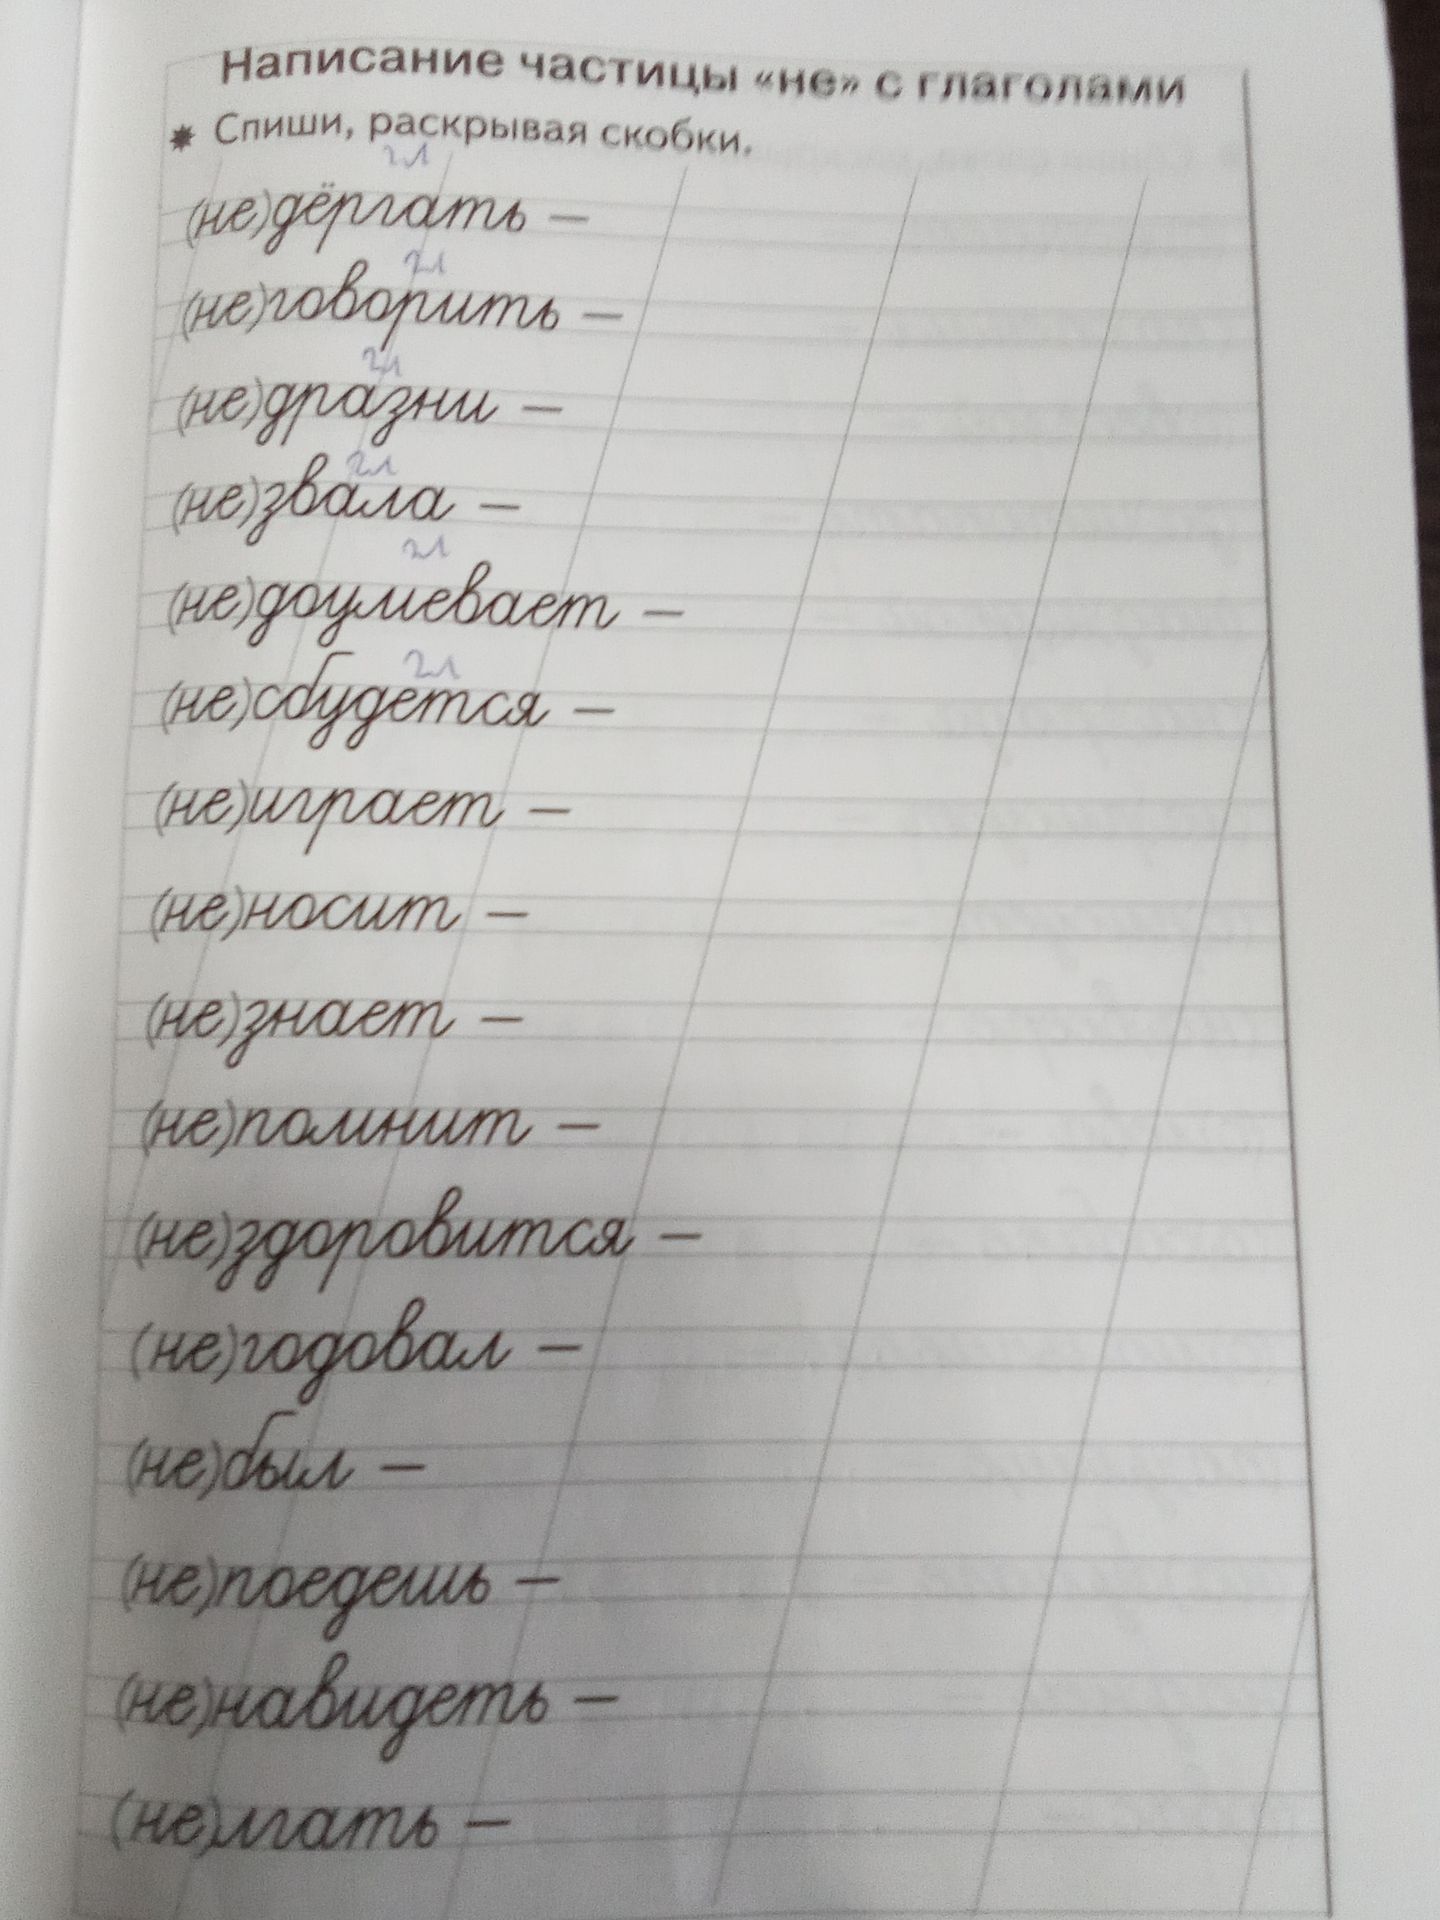 Написание частицы «не» с глаголами
✷ Спиши, раскрывая скобки.
гл
(не)дёргать –
гл
(не)говорить –
гл
(не)дразни –
гл
(не)звала –
гл
(не)доумевает –
гл
(не)сбудется –
(не)играет –
(не)носит –
(не)знает –
(не)помнит –
(не)здоровится –
(не)годовал –
(не)был –
(не)поедешь –
(не)навидеть –
(не)лгать –